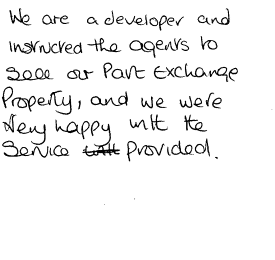 We are a developer and
instructed the agents to
sell our Part Exchange
Property, and we were
very happy with the
Service provided.